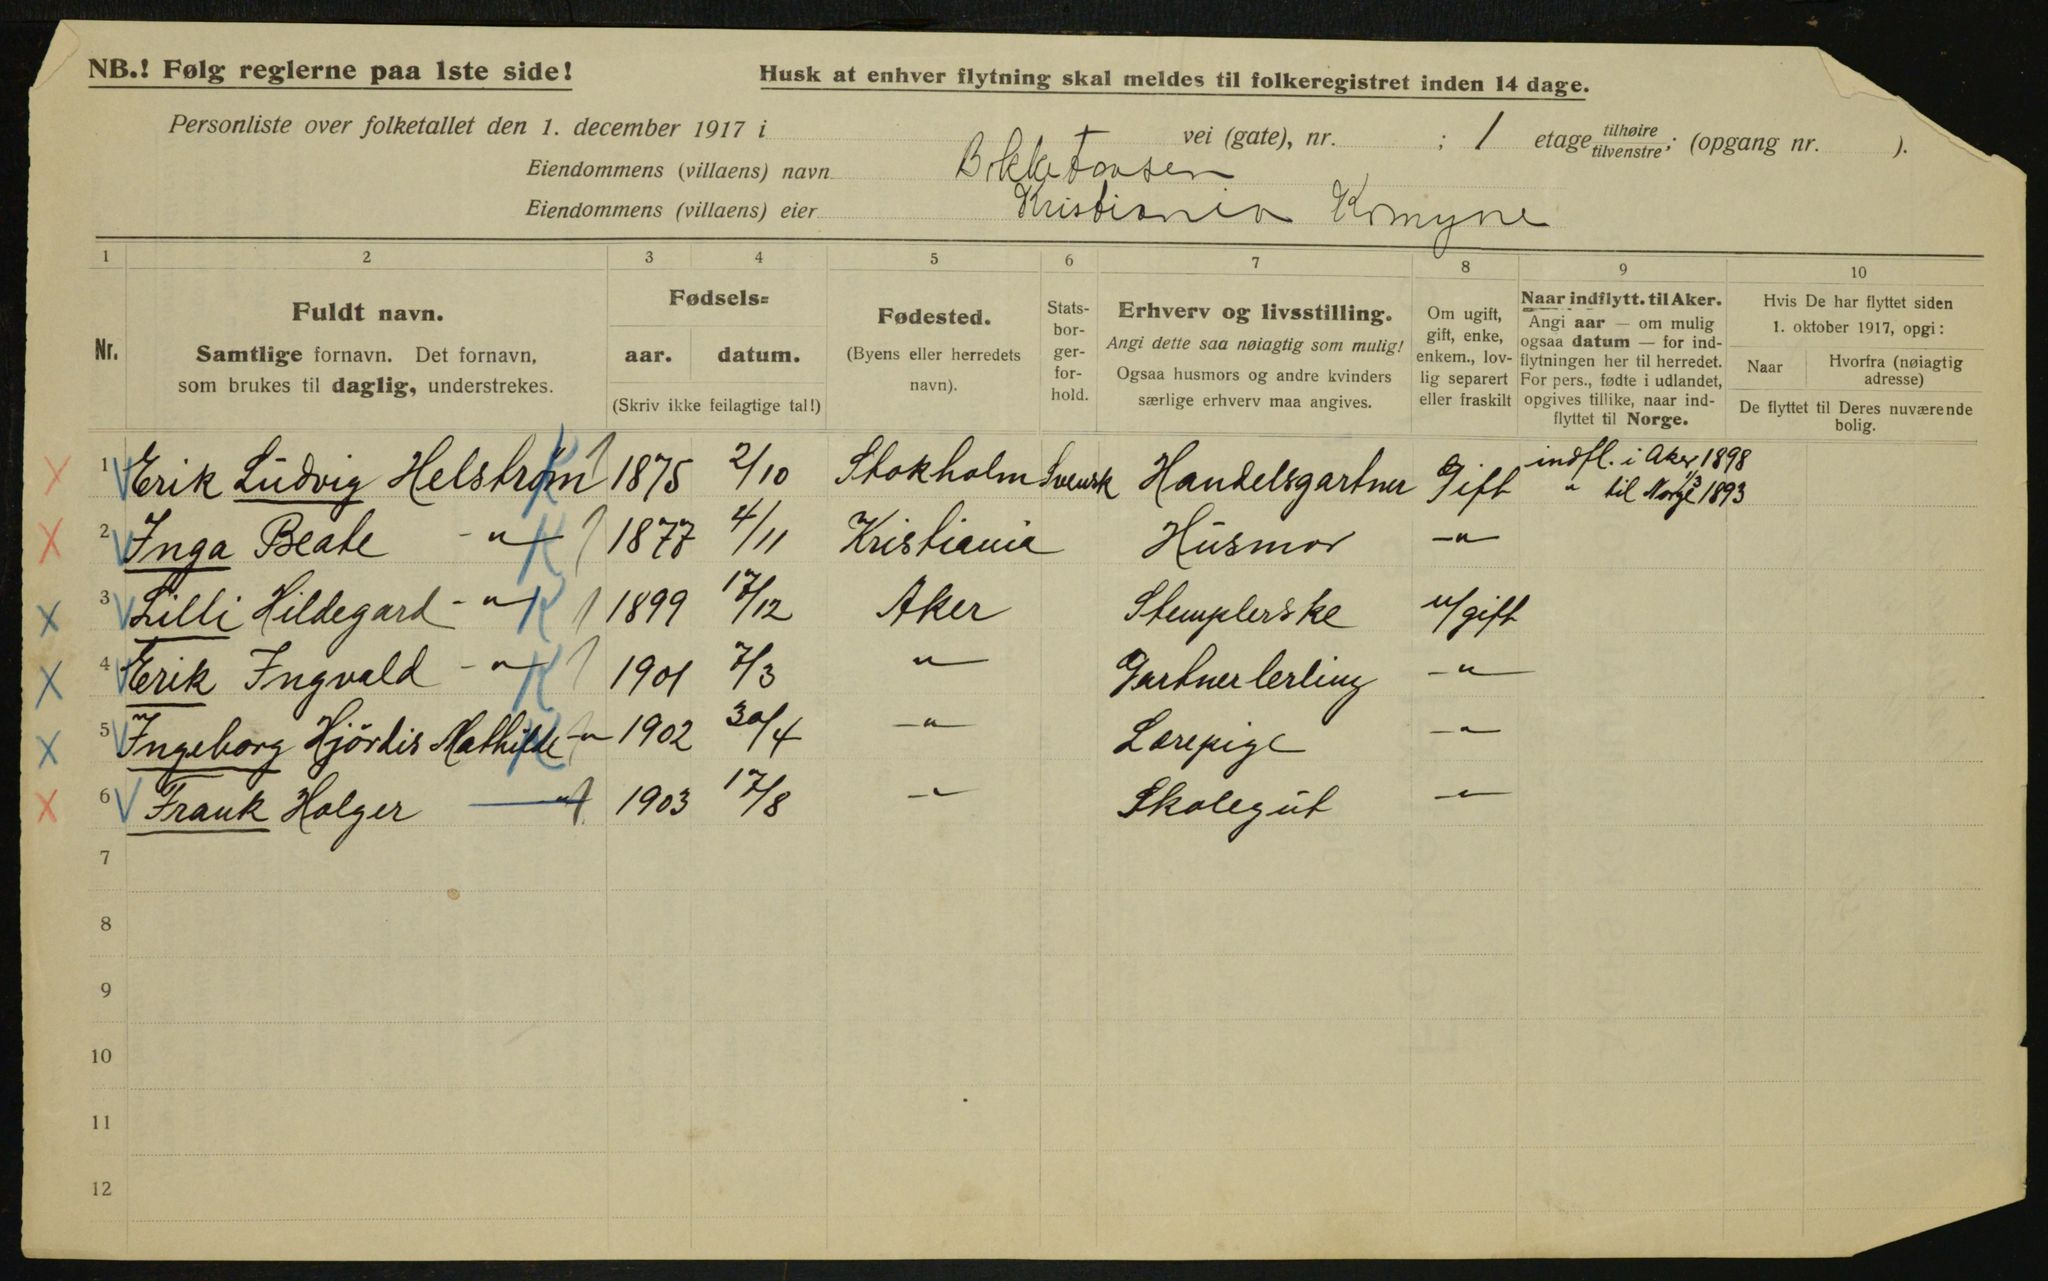 NB.! Følg reglerne paa 1ste side!
Husk at enhver flytning skal meldes til folkeregistret inden 14 dage.
Personliste over folketallet den 1. december 1917 i vei (gate), nr. ; 1 etage tilhøire tilvenstre; (opgang nr. ).
Eiendommens (villaens) navn
Eiendommens (villaens) eier Kristiania
1 2 3 4 5 6 7 8 9 10
Nr.
Fuldt navn.
Samtlige fornavn. Det fornavn,
som brukes til daglig, understrekes.
Fødsels=
aar. datum.
(Skriv ikke feilagtige tal!)
Fødested.
(Byens eller herredets
navn).
Stats-
bor-
ger-
for-
hold.
Erhverv og livsstilling.
Angi dette saa nøiagtig som mulig!
Ogsaa husmors og andre kvinders
særlige erhverv maa angives.
Om ugift,
gift, enke,
enkem., lov-
lig separert
eller fraskilt
Naar indflytt. til Aker.
Angi aar — om mulig
ogsaa datum — for ind-
flytningen her til herredet.
For pers., fødte i udlandet,
opgives tillike, naar ind-
flyttet til Norge.
Hvis De har flyttet siden
1. oktober 1917, opgi:
Naar
Hvorfra (nøiagtig
adresse)
De flyttet til Deres nuværende
bolig.
1 Erik Ludvig Helstrøm 1875 2/10 Stokholm Svensk Handelsgartner Gift indfl. i Aker 1898
" til Norge 1893
2 Inga Beate -"- 1877 4/11 Kristiania Husmor -"-
3 Lilli Hildegard -"- 1899 17/12 Aker Stemplerske u/gift
4 Erik Ingvald -"- 1901 7/3 -"- Gartnerlerling -"-
5 Ingeborg Hjördis Mathilde -"- 1902 30/4 -"- Lærepige -"-
6 Frank Holger -"- 1903 17/8 -"- Skolegut -"-
7
8
9
10
11
12